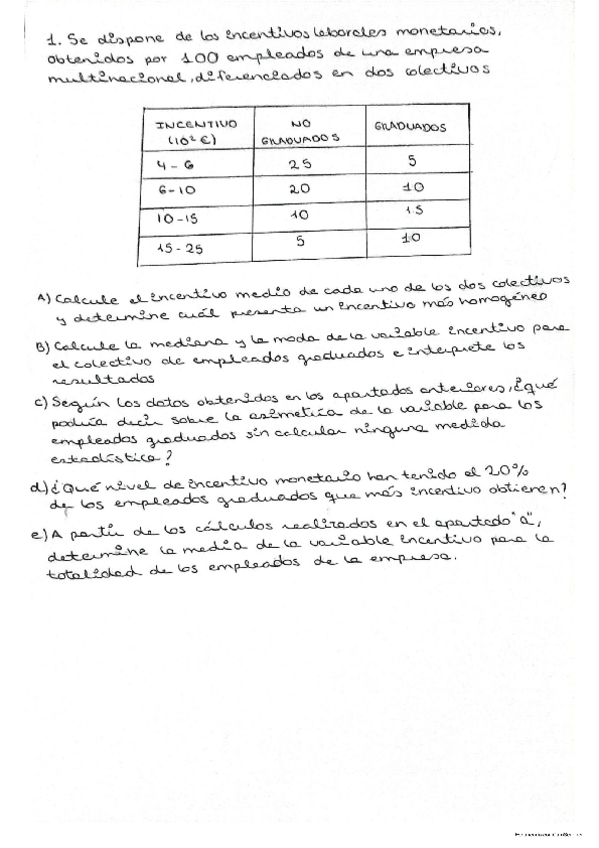 1. Se dispone de los incentivos laborales monetarios,
obtenidos por 100 empleados de una empresa
multinacional, diferenciados en dos colectivos
INCENTIVO (10² €) NO GRADUADOS GRADUADOS
4-6 25 5
6-10 20 10
10-15 10 15
15-25 5 10
A) Calcule el incentivo medio de cada uno de los dos colectivos
y determine cuál presenta un incentivo más homogéneo
B) Calcule la mediana y la moda de la variable incentivo para
el colectivo de empleados graduados e interprete los
resultados
c) Según los datos obtenidos en los apartados anteriores, ¿qué
podría decir sobre la asimetría de la variable para los
empleados graduados sin calcular ninguna medida
estadística?
d) ¿Qué nivel de incentivo monetario han tenido el 20%
de los empleados graduados que más incentivo obtienen?
e) A partir de los cálculos realizados en el apartado "a",
determine la media de la variable incentivo para la
totalidad de los empleados de la empresa.